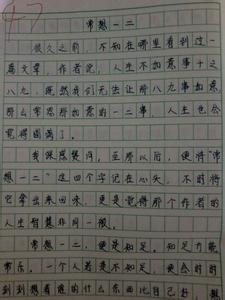 47
常想一二
很久之前，不知在哪里看到过一
篇文章，作者说，人生不如意事十之
八九，既然我们无法让那八九事如意，
那么常想那如意的一二事，人生也会
觉得圆满了。
我深感赞同，至那以后，便将“常
想一二”这四个字记在心头，不时将
它拿出来回味，更是觉得那个作者的
人生智慧非同一般。
常想一二，便是知足。知足方能
常乐。一个人若是不知足，便会时时
刻刻想着